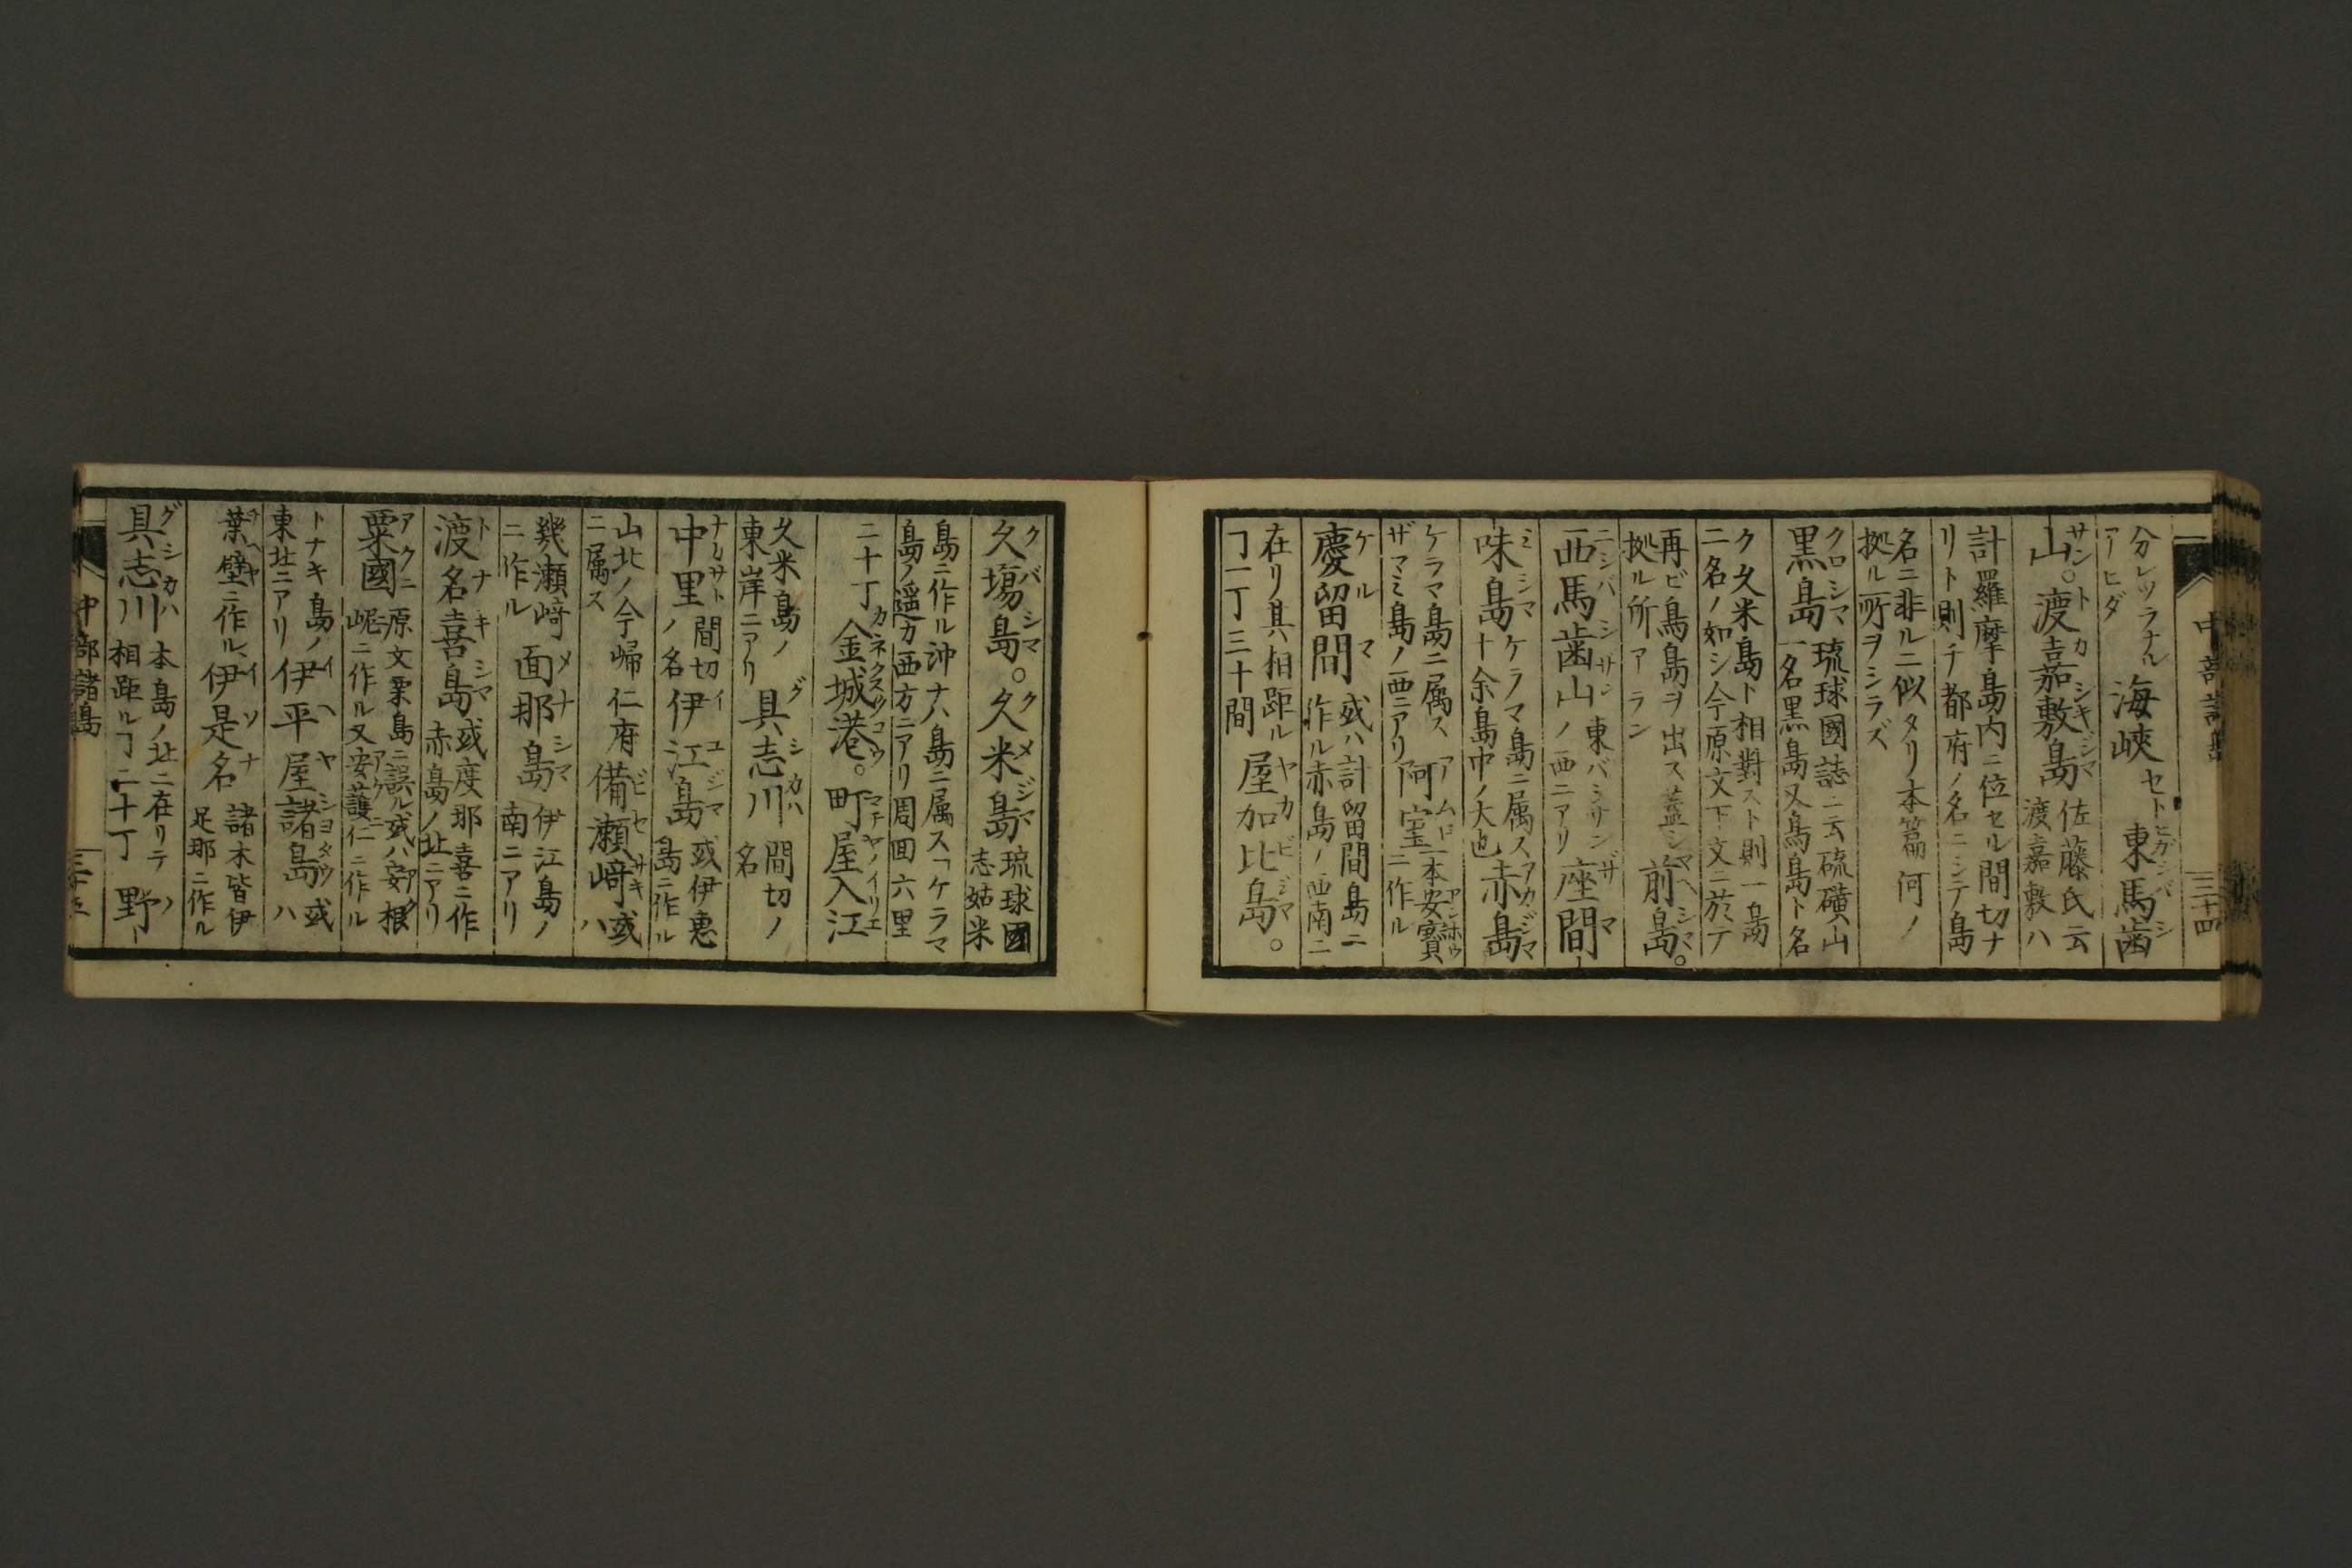 中部諸島
三十四
分レツラナル
アヒダ
海峽セト
東馬歯
山。渡嘉敷島
佐藤氏云
渡嘉敷ハ
計羅摩島内ニ位セル間切ナ
リト則チ都府ノ名ニシテ島
名ニ非ルニ似タリ本篇何ノ
拠ル所ヲシラズ
黒島
琉球國誌ニ云硫磺山
一名黒島又鳥島ト名
ク久米島ト相對スト則一島
ニ名ノ如シ今原文下文ニ於テ
再ビ鳥島ヲ出ス蓋シ
拠ル所アラン
前島。
西馬歯山
東バシサン
ノ西ニアリ
座間
味島
ケラマ島ニ属ス
十余島中ノ大也
赤島
ケラマ島ニ属ス
ザマミ島ノ西ニアリ
阿室
一本安寳
ニ作ル
慶留間
或ハ計留間島ニ
作ル赤島ノ西南ニ
在リ其相距ル
ヿ一丁三十間
屋加比島。
久塲島。久米島
琉球國
志姑米
島ニ作ル沖ナハ島ニ属ス「ケラマ
島ノ遥カ西方ニアリ周囬六里
二十丁
金城港。町屋入江
久米島ノ
東岸ニアリ
具志川
間切ノ
名
中里
間切
ノ名
伊江島
或伊惠
島ニ作ル
山北ノ今帰仁府
ニ属ス
備瀬﨑
或
ハ
幾瀬﨑
ニ作ル
面那島
伊江島ノ
南ニアリ
渡名喜島
或度那喜ニ作
赤島ノ北ニアリ
粟國
原文栗島ニ誤ル或ハ安根
岮ニ作ル又安護仁ニ作ル
トナキ島ノ
東北ニアリ
伊平屋諸島
或
ハ
葉壁ニ作ル
伊是名
諸本皆伊
足那ニ作ル
具志川
本島ノ北ニ在リテ
相距ルヿ二十丁
野
中部諸島